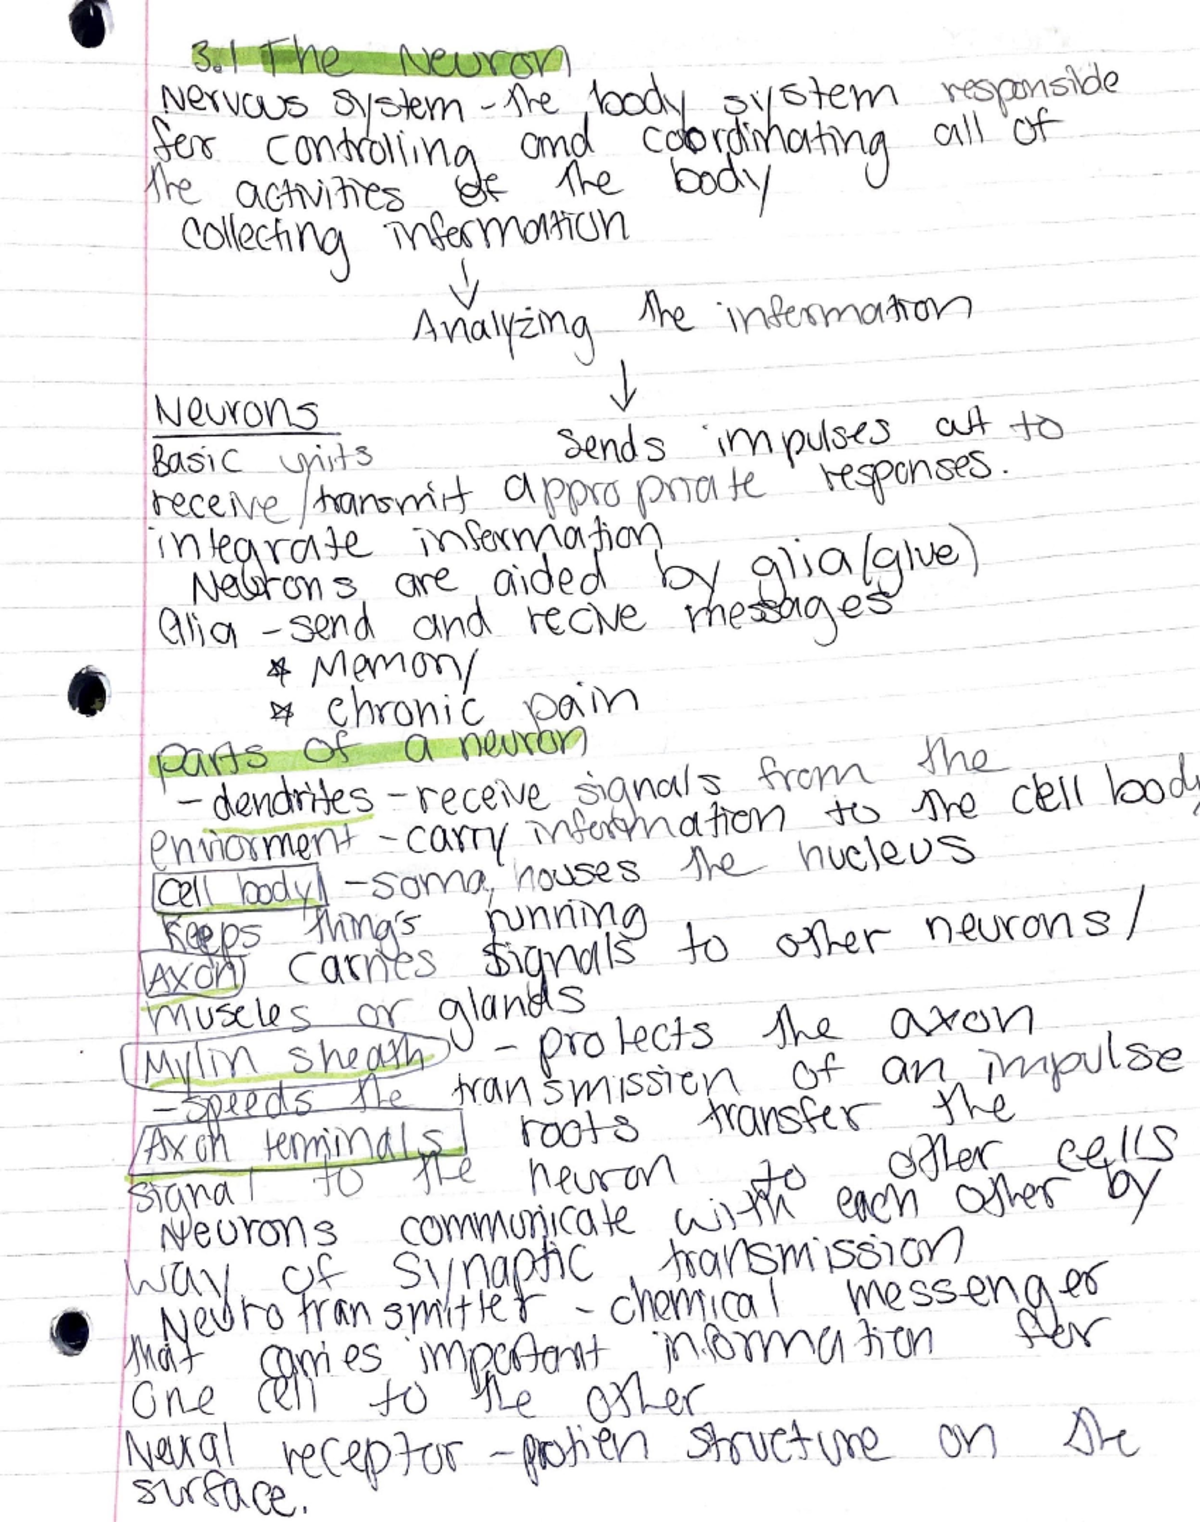 3.1 The Neuron
Nervous system - the body system responsible
for controlling and coordinating all of
the activities of the body
collecting information
↓
Analyzing the information
↓
Neurons
Basic units sends impulses out to
receive/transmit appropriate responses.
integrate information
Neurons are aided by glia (glue)
Glia - send and recive messages
* Memory
* chronic pain
parts of a neuron
- dendrites - receive signals from the
enviorment - carry information to the cell body
cell body - soma, houses the nucleus
keeps things running
Axon carries signals to other neurons/
muscles or glands
Mylin sheath - protects the axon
- speeds the transmission of an impulse
Axon terminals roots transfer the
signal to the neuron to other cells
Neurons communicate with each other by
way of synaptic transmission
Neurotransmitter - chemical messenger
that carries important information for
one cell to the other
Neural receptor - protien structure on the
surface.